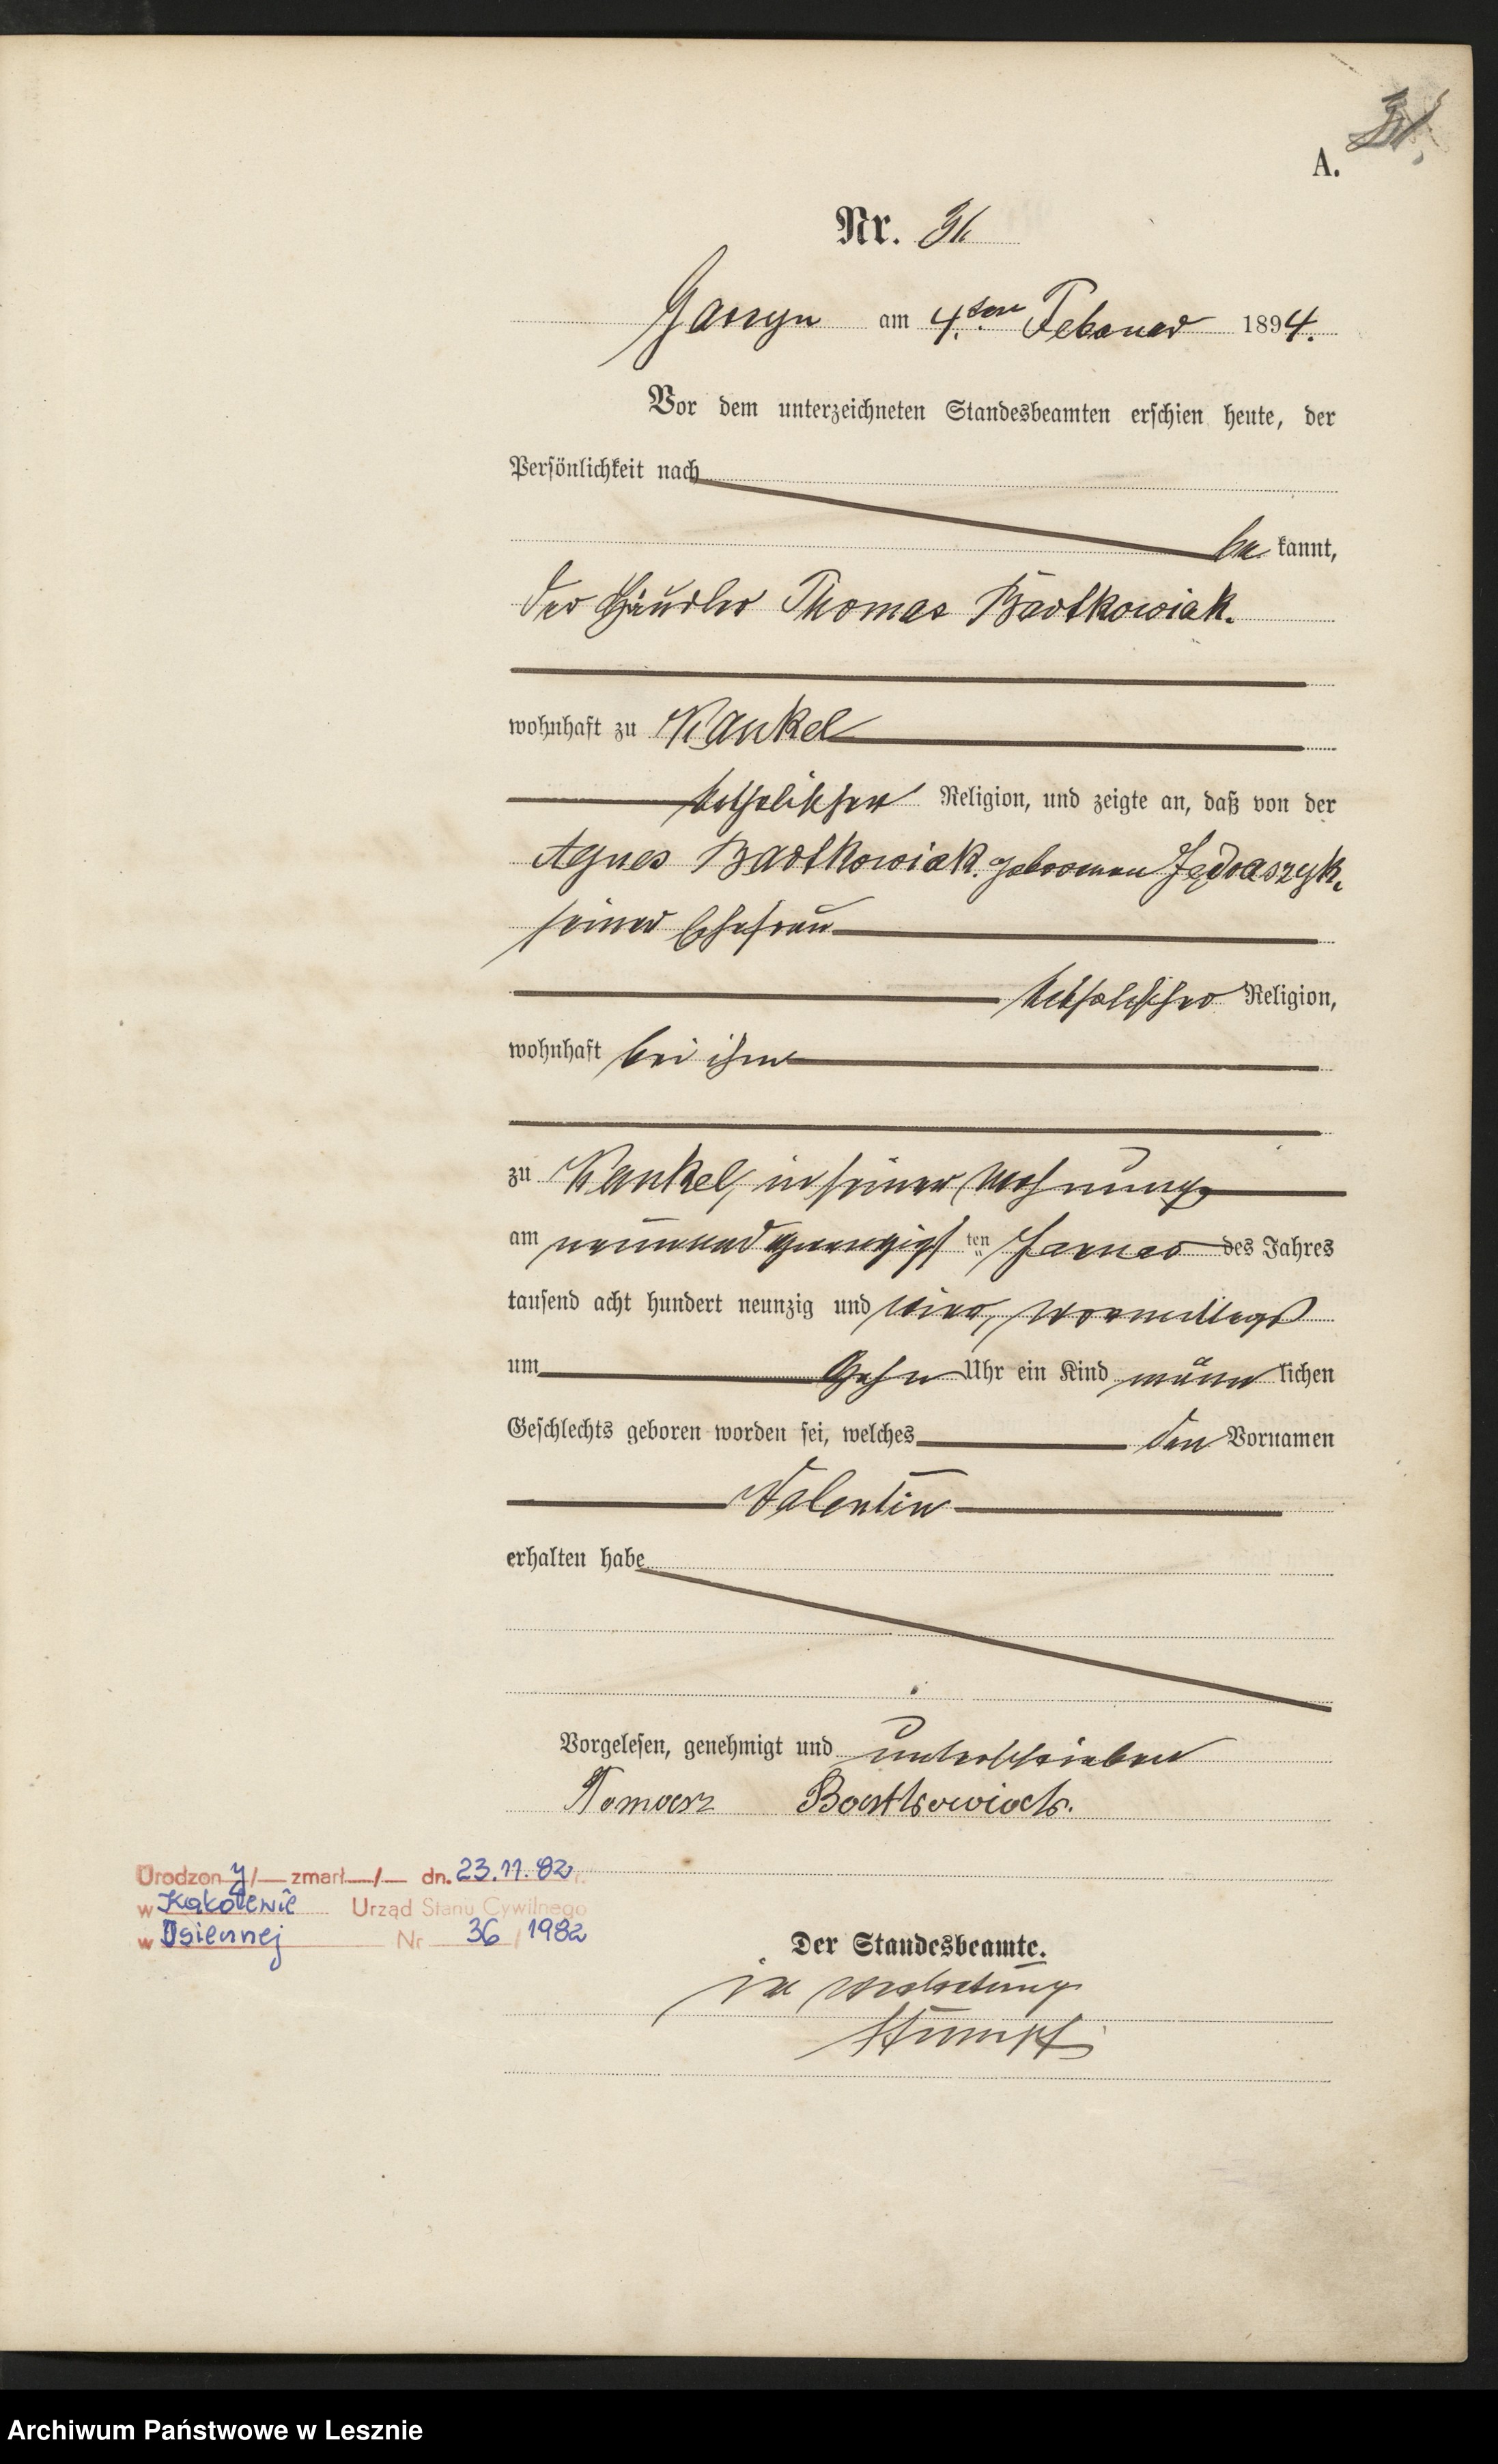 31.
A.
Nr. 31.
Garzyn am 4.ten Februar 1894.
Vor dem unterzeichneten Standesbeamten erschien heute, der
Persönlichkeit nach
be kannt,
der Händler Thomas Bartkowiak.
wohnhaft zu Kankel
katholischer Religion, und zeigte an, daß von der
Agnes Bartkowiak. geborenen Jędraszyk,
seiner Ehefrau
katholischer Religion,
wohnhaft bei ihm
zu Kankel, in seiner Wohnung
am neunundzwanzigsten Januar des Jahres
tausend acht hundert neunzig und vier, vormittags
um zehn Uhr ein Kind männlichen
Geschlechts geboren worden sei, welches den Vornamen
Valentin
erhalten habe
Vorgelesen, genehmigt und unterschrieben
Tomasz Bartkowiak.
Urodzon y/— zmarł—/— dn. 23.11.82 r.
w Kąkolewie Urząd Stanu Cywilnego
w Osiecznej Nr 36/1982
Der Standesbeamte.
in Vertretung
Stumpf
Archiwum Państwowe w Lesznie